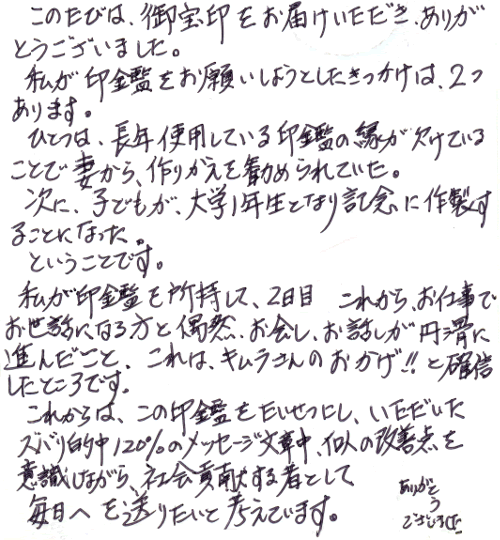 このたびは、御宝印をお届けいただき、ありが
とうございました。
私が印鑑をお願いしようとしたきっかけは、2つ
あります。
ひとつは、長年使用している印鑑の縁が欠けている
ことで妻から、作りかえを勧められていた。
次に、子どもが、大学1年生となり記念に作製す
ることになった。
ということです。
私が印鑑を所持して、2日目 これから、お仕事で
お世話になる方と偶然、お会し、お話しが円滑に
進んだこと、これは、キムラさんのおかげ!!と確信
したところです。
これからは、この印鑑をたいせつにし、いただいた
ズバリ的中120%のメッセージ文章中、私の改善点を
意識しながら、社会貢献する者として
毎日へを送りたいと考えています。
ありがとう
ございました